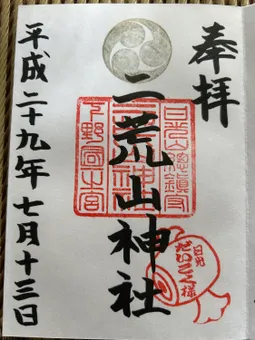 奉拝
二荒山神社
平成二十九年七月十三日
日光山總鎮守
下野国一宮
日光
だいこく様